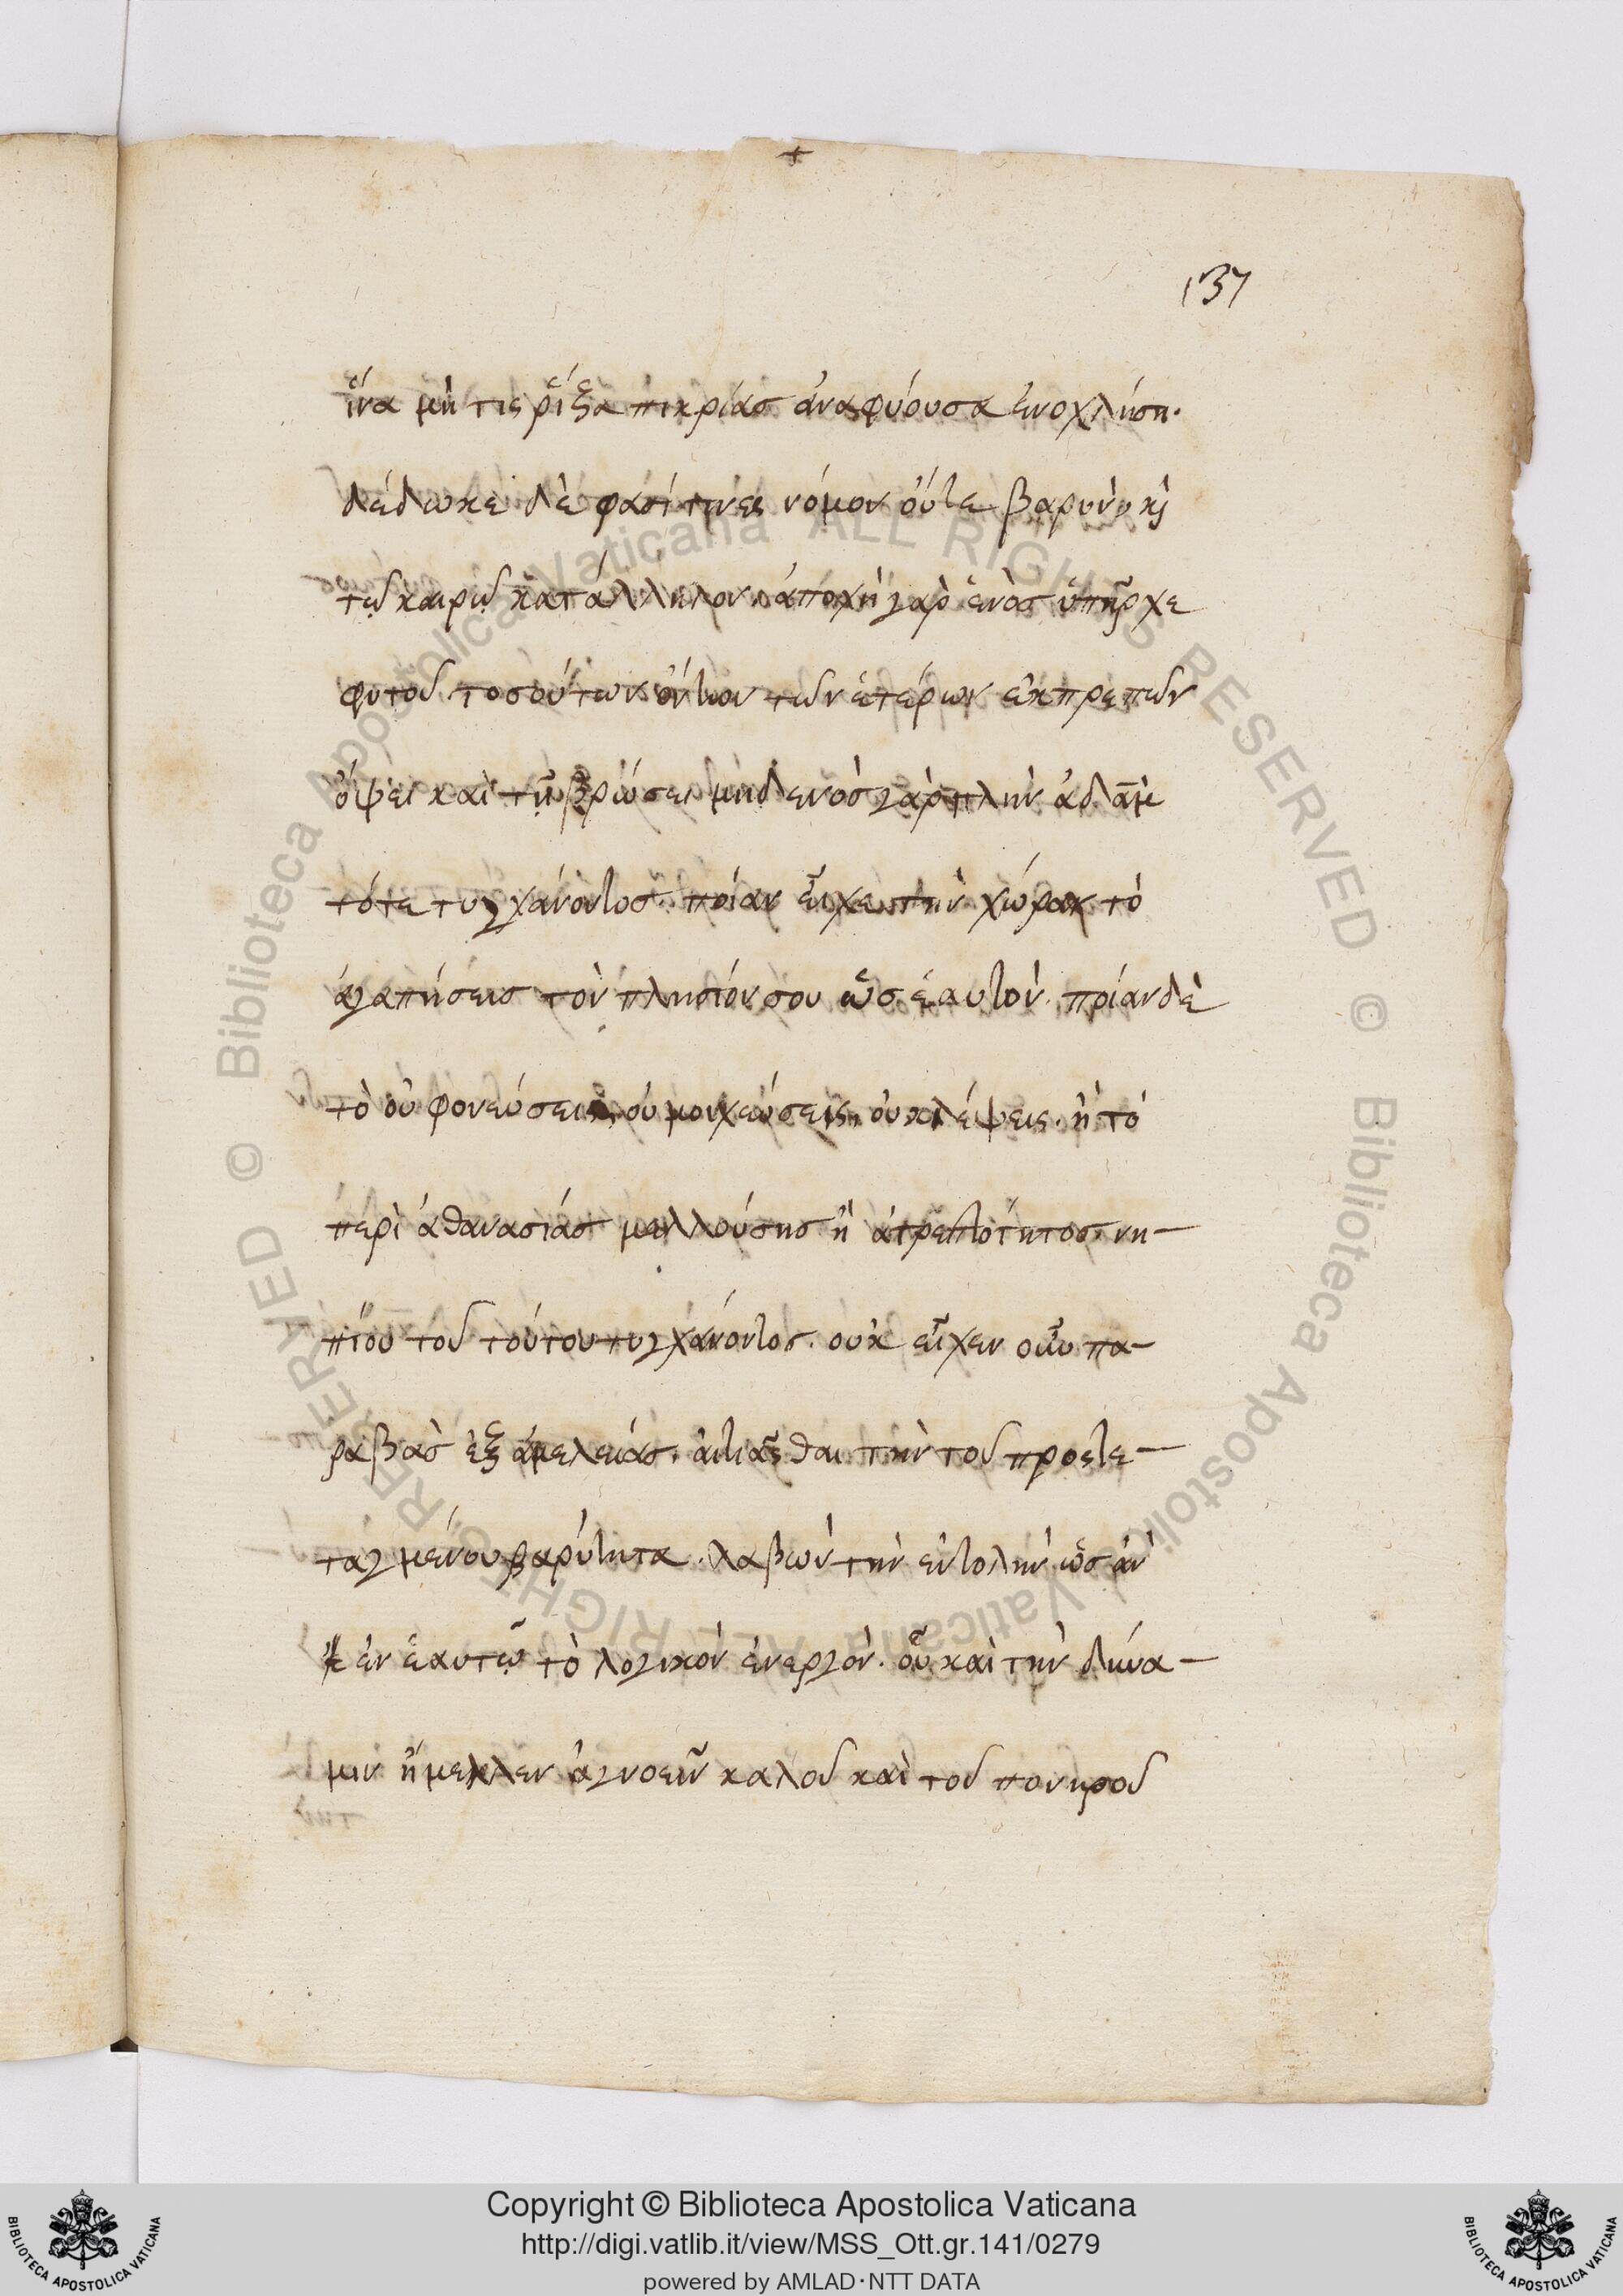 137
ἵνα μή τις ῥίζα πικρίας ἀναφύουσα ἐνοχλήση·
δέδωκε δὲ φασί τινες νόμον οὔτε βαρὺν, κὶ
τῶ καιρῶ κατάλληλον. ἀποχὴ γὰρ ἑνὸς ὑπῆρχε
φυτοῦ τοσούτων ὄντων τῶν ἑτέρων εὐπρεπῶν
ὄψει καὶ τῆ βρώσει μηδενὸς γὰρ πλὴν ἀδὰμ
τότε τυγχάνοντος. ποίαν εἶχε τὴν χώραν τὸ
ἀγαπήσεις τὸν πλησίον σου ὡς ἑαυτὸν. ποίαν δὲ
τὸ οὐ φονεύσεις, οὐ μοιχεύσεις, οὐ κλέψεις. ἢ τὸ
περὶ ἀθανασίας μελλούσης ἢ ἀτρεπτότητος. νη-
πίου τοῦ τούτου τυγχάνοντος. οὐκ εἶχεν οὖν πα-
ραβὰς ἐξ ἀμελείας. αἰτιᾶσθαι τὴν τοῦ προστε-
ταγμένου βαρύτητα. λαβὼν τὴν ἐντολὴν ὡς ἂν
ἐν ἑαυτῶ τὸ λογικὸν ἐνεργὸν. οὗ καὶ τὴν δύνα-
μιν ἤμελλεν ἀγνοεῖν καλοῦ καὶ τοῦ πονηροῦ
© Biblioteca Apostolica Vaticana ALL RIGHTS RESERVED © Biblioteca Apostolica Vaticana ALL RIGHTS RESERVED
Copyright © Biblioteca Apostolica Vaticana
http://digi.vatlib.it/view/MSS_Ott.gr.141/0279
powered by AMLAD·NTT DATA
BIBLIOTECA APOSTOLICA VATICANA
BIBLIOTECA APOSTOLICA VATICANA